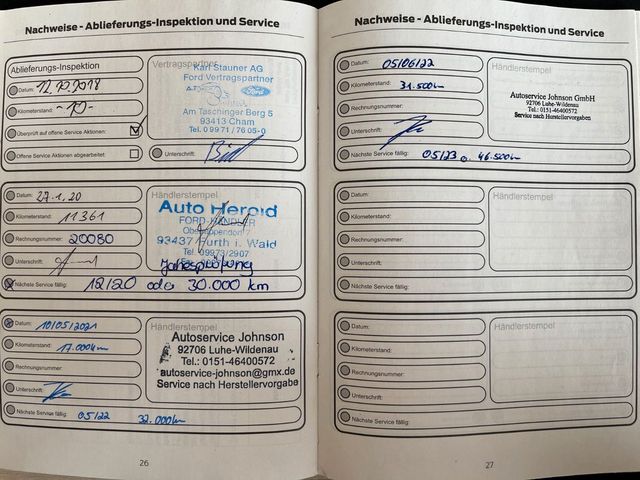 Nachweise - Ablieferungs-Inspektion und Service
Ablieferungs-Inspektion
Datum: 12.10.2018
Kilometerstand: -10-
Überprüft auf offene Service Aktionen:
Offene Service Aktionen abgearbeitet:
Vertragspartner
Karl Stauner AG
Ford Vertragspartner
Ford
Am Taschinger Berg 5
93413 Cham
Tel. 0 99 71 / 76 05-0
Unterschrift:
Datum: 27.1.20
Kilometerstand: 11361
Rechnungsnummer: 20080
Unterschrift:
Händlerstempel
Auto Herold
FORD-HÄNDLER
93437 Furth i. Wald
Tel. 09973/2907
Jahresprüfung
Nächste Service fällig: 12/20 oder 30.000 km
Datum: 10/05/2021
Kilometerstand: 17.000km
Rechnungsnummer:
Unterschrift:
Händlerstempel
Autoservice Johnson
92706 Luhe-Wildenau
Tel.: 0151-46400572
autoservice-johnson@gmx.de
Service nach Herstellervorgabe
Nächste Service fällig: 05/22 32.000km
26
Nachweise - Ablieferungs-Inspektion und Service
Datum: 05/06/22
Kilometerstand: 31.500km
Rechnungsnummer:
Unterschrift:
Händlerstempel
Autoservice Johnson GmbH
92706 Luhe-Wildenau
Service nach Herstellervorgaben
Nächste Service fällig: 05/23 o. 46.500km
Datum:
Kilometerstand:
Rechnungsnummer:
Unterschrift:
Händlerstempel
Nächste Service fällig:
Datum:
Kilometerstand:
Rechnungsnummer:
Unterschrift:
Händlerstempel
Nächste Service fällig:
27